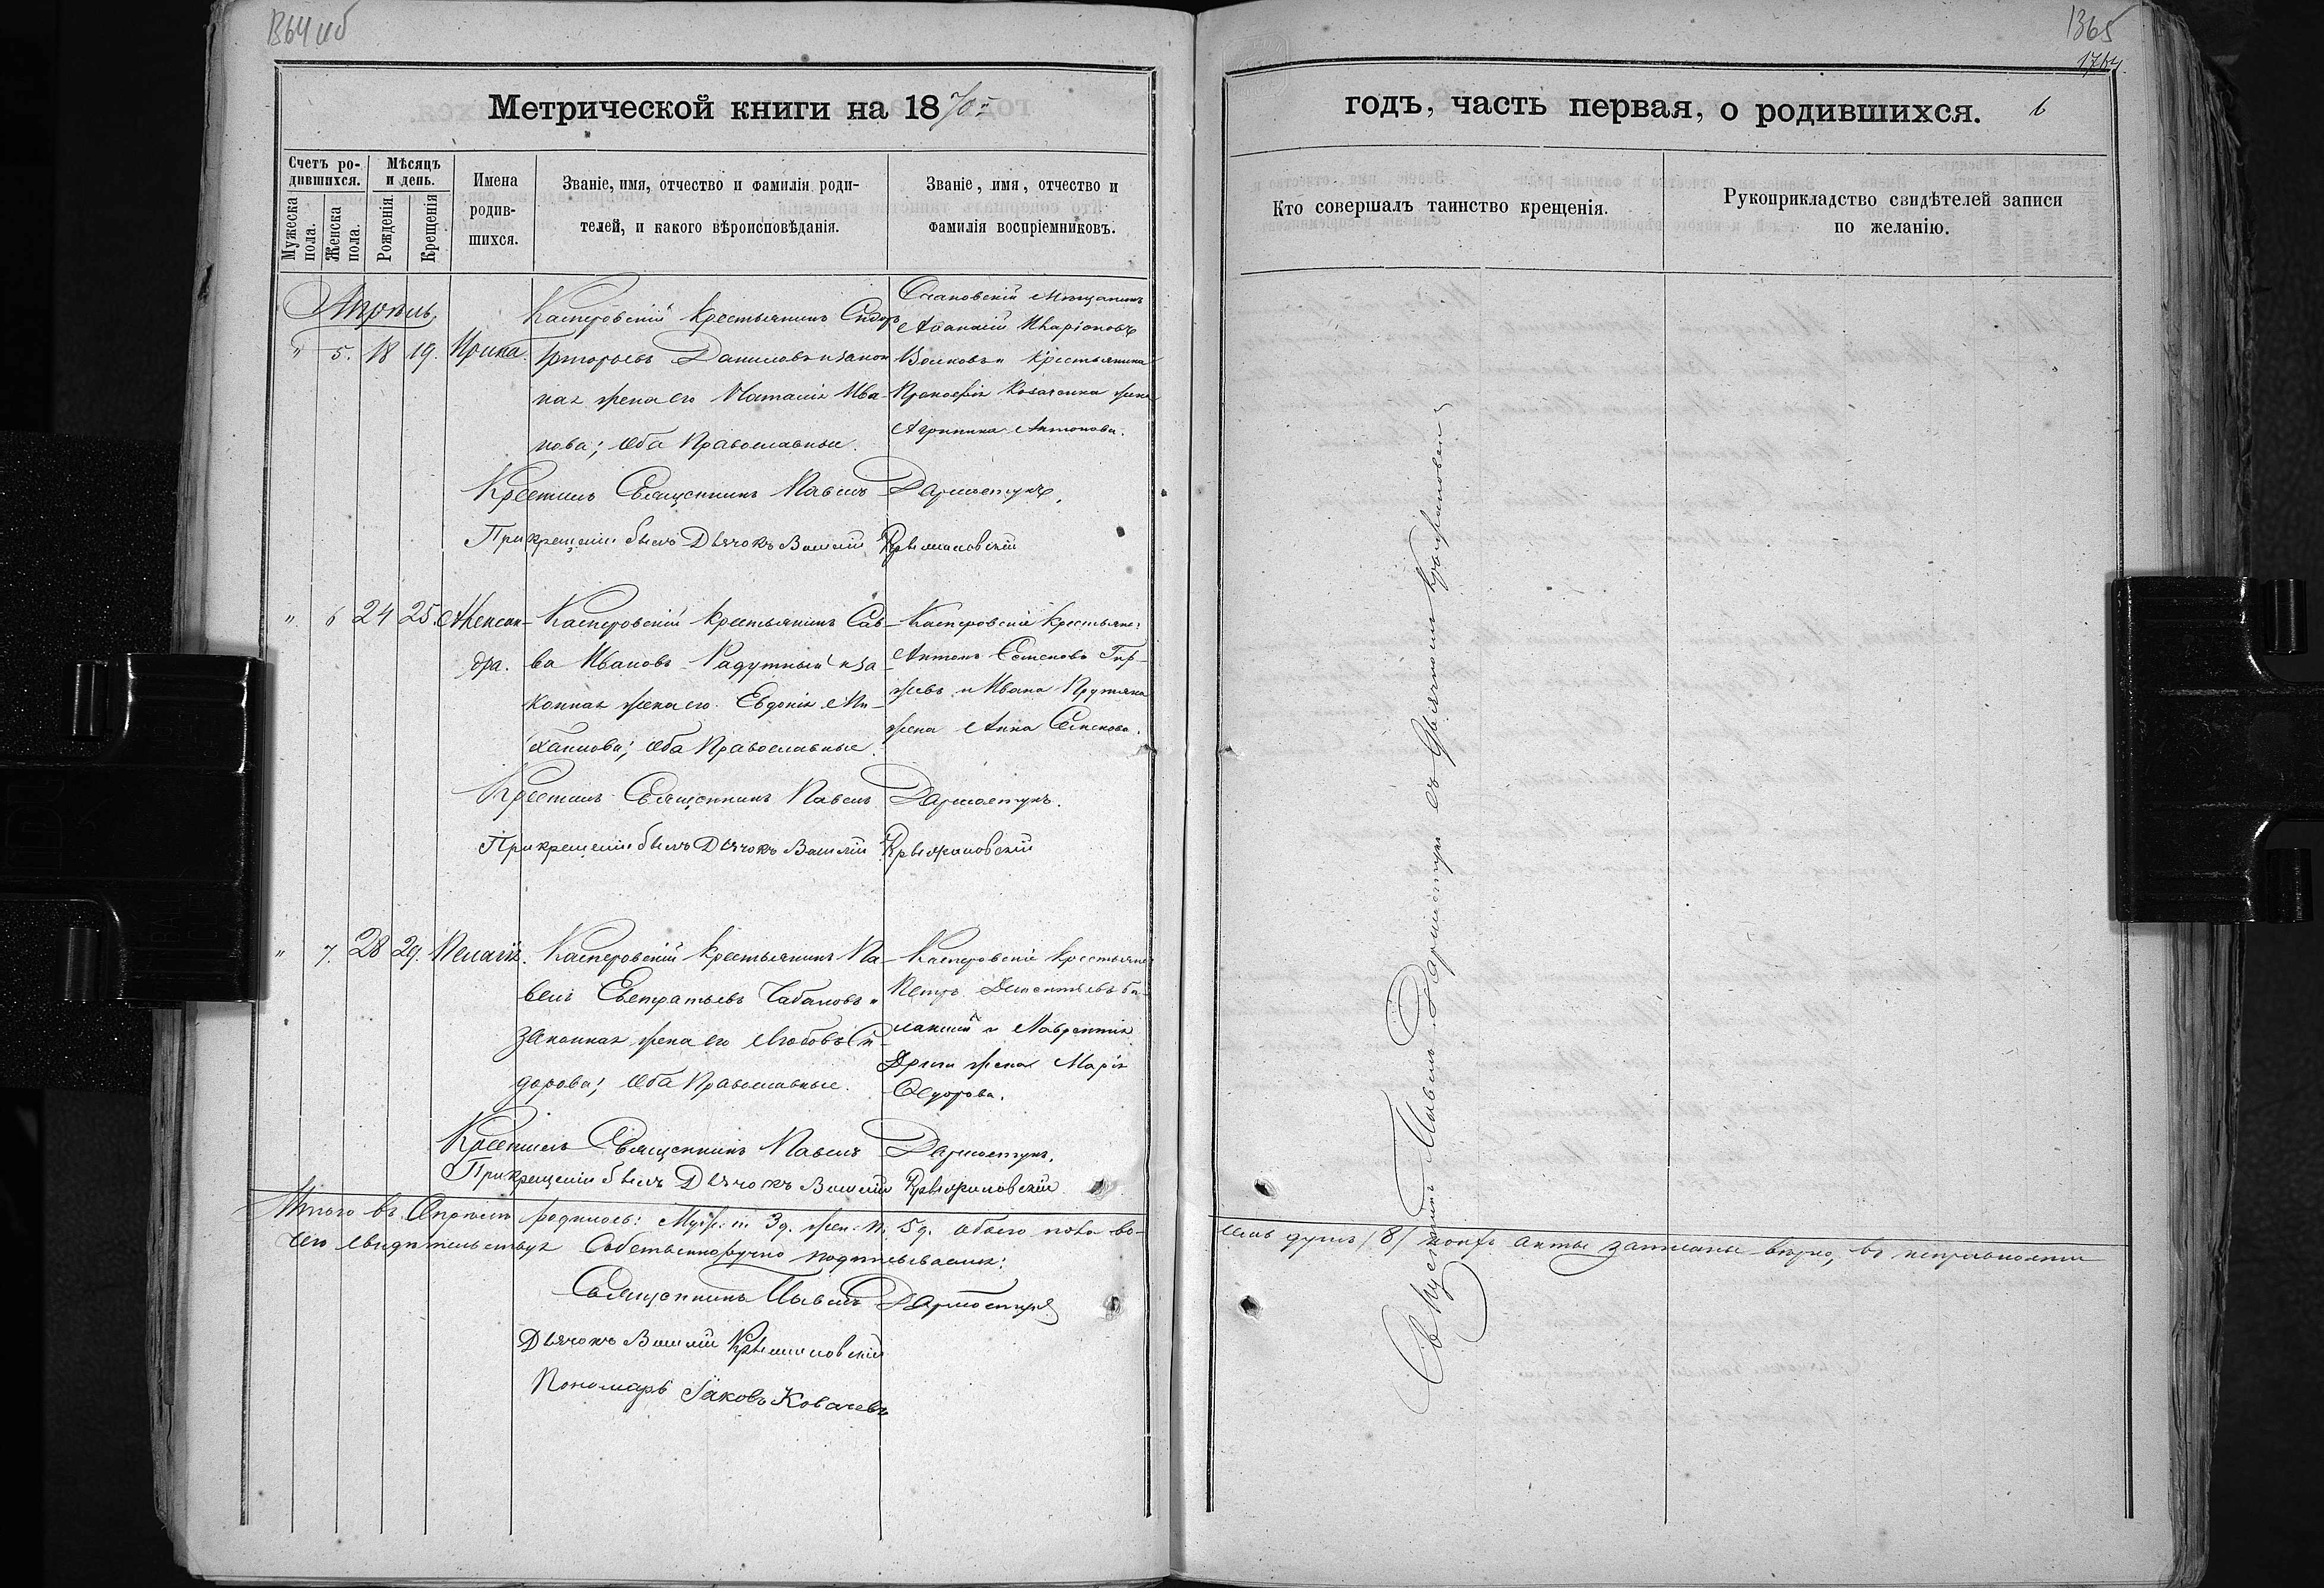 1364 об
1365
1764.
Метрической книги на 1870й
годъ, часть первая, о родившихся. 6
Счетъ родившихся.
Мужеска пола.
Женска пола.
Мѣсяцъ и день.
Рожденія.
Крещенія
Имена родившихся.
Званіе, имя, отчество и фамилія роди-
телей, и какого вѣроисповѣданія.
Званіе, имя, отчество и
фамилія воспріемниковъ.
Кто совершалъ таинство крещенія.
Рукоприкладство свидѣтелей записи
по желанію.
Апрѣль
" 5. 18 19. Ирина.
Касперовскій крестьянинъ Сидоръ
Григорьевъ Даниловъ и закон
ная жена его Наталія Ива-
нова; оба Православные.
Очаковскій мѣщанинъ
Аѳанасій Иларіоновъ
Волковъ и крестьянина
Прокофія Козаченка жена
Агрипина Антонова.
Крестилъ Священникъ Павелъ Дармостукъ.
При крещеніи былъ Дьячокъ Василій Крыжановскій
" 6 24 25. Алексан-
дра.
Касперовскій крестьянинъ Сав-
ва Ивановъ Радутный и за-
конная жена его Евдокія Ми-
хаилова; оба Православные.
Касперовскіе крестьяне:
Антонъ Семеновъ
и Ивана
жена Анна Семенова.
Крестилъ Священникъ Павелъ Дармостукъ.
При крещеніи былъ Дьячокъ Василій Крыжановскій
" 7. 28 29. Пелагія.
Касперовскій крестьянинъ Па-
велъ Евстратьевъ Чабановъ и
законная жена его Любовь Си-
дорова; оба Православные.
Касперовскіе крестьяне
Петръ Дементьевъ
и Лаврентія
жена Марія
Ѳедорова.
Крестилъ Священникъ Павелъ Дармостукъ.
При крещеніи былъ Дьячокъ Василій Крыжановскій
Итого въ Апрѣлѣ родилось: Муж: п. 3д. жен: п. 5д. обоего пола во-
семь душъ /8/ коихъ акты записаны вѣрно, въ
чемъ свидѣтельствуя Собственноручно подписываемся:
Священникъ Павелъ Дармостукъ
Дьячокъ Василій Крыжановскій
Пономарь Іаковъ Ковачевъ
Священникъ Павелъ Дармостукъ съ Дьячкомъ Крыжановскимъ